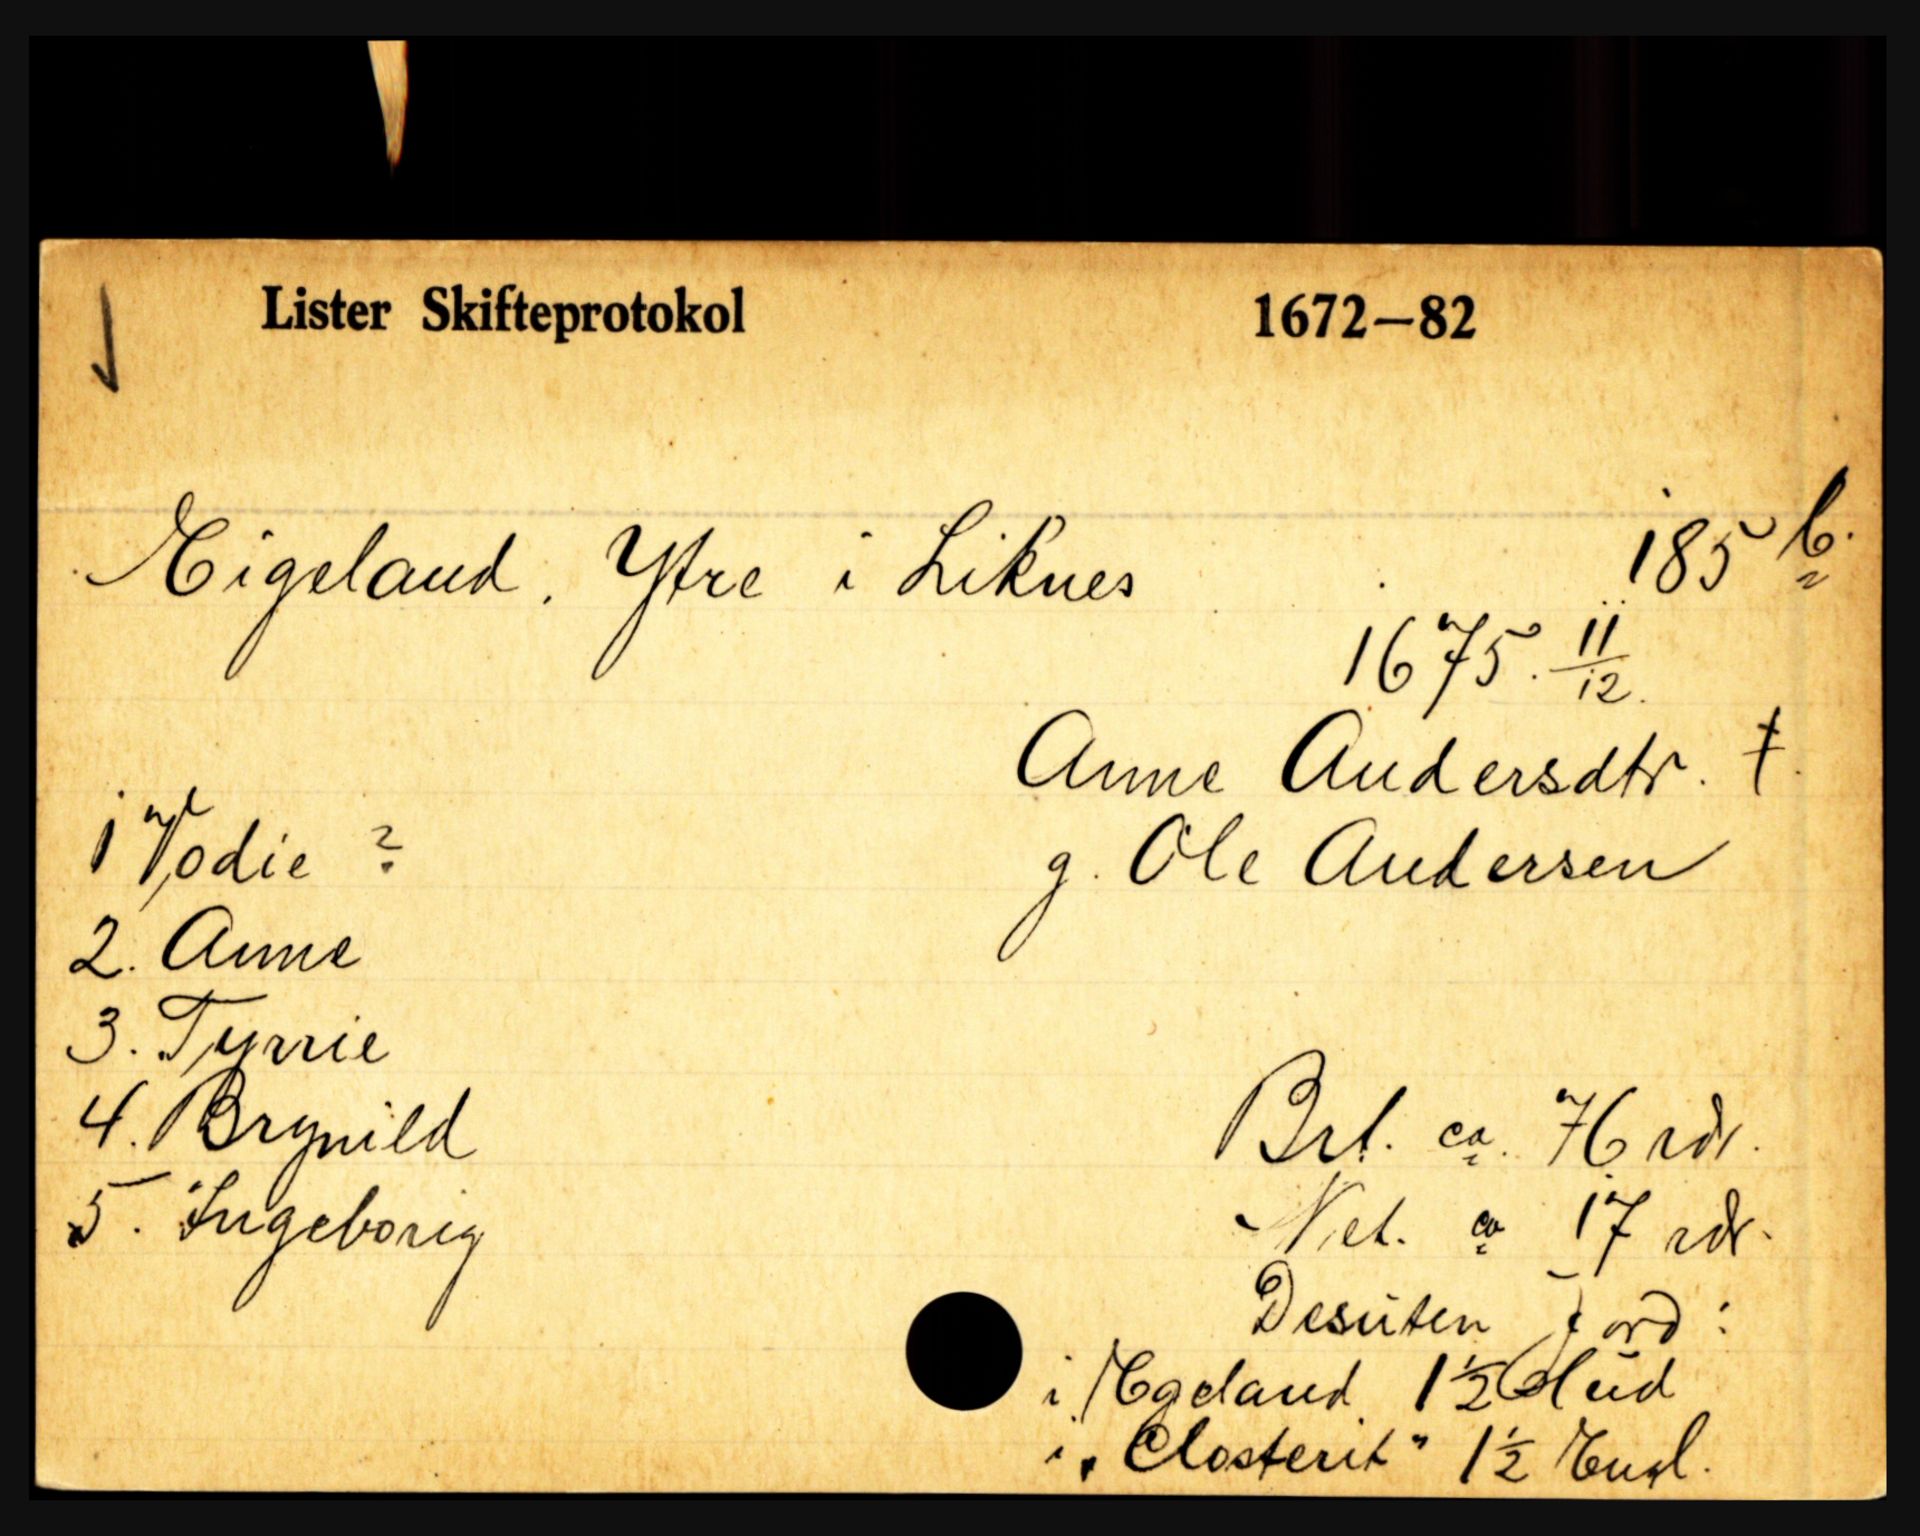 Lister Skifteprotokol 1672–82
Eigeland, Ytre i Liknes 185 b.
1675. 11/12.
Anne Andersdtr. †.
g. Ole Andersen
1 Todie ?
2. Anne
3. Tyrrie
4. Brynild
5. Ingeborig
Brt. ca. 76 rdr.
Net. ca 17 rdr.
Desuten Jord :
i Egeland 1½ Hud
i „Closterit" 1½ Engl.